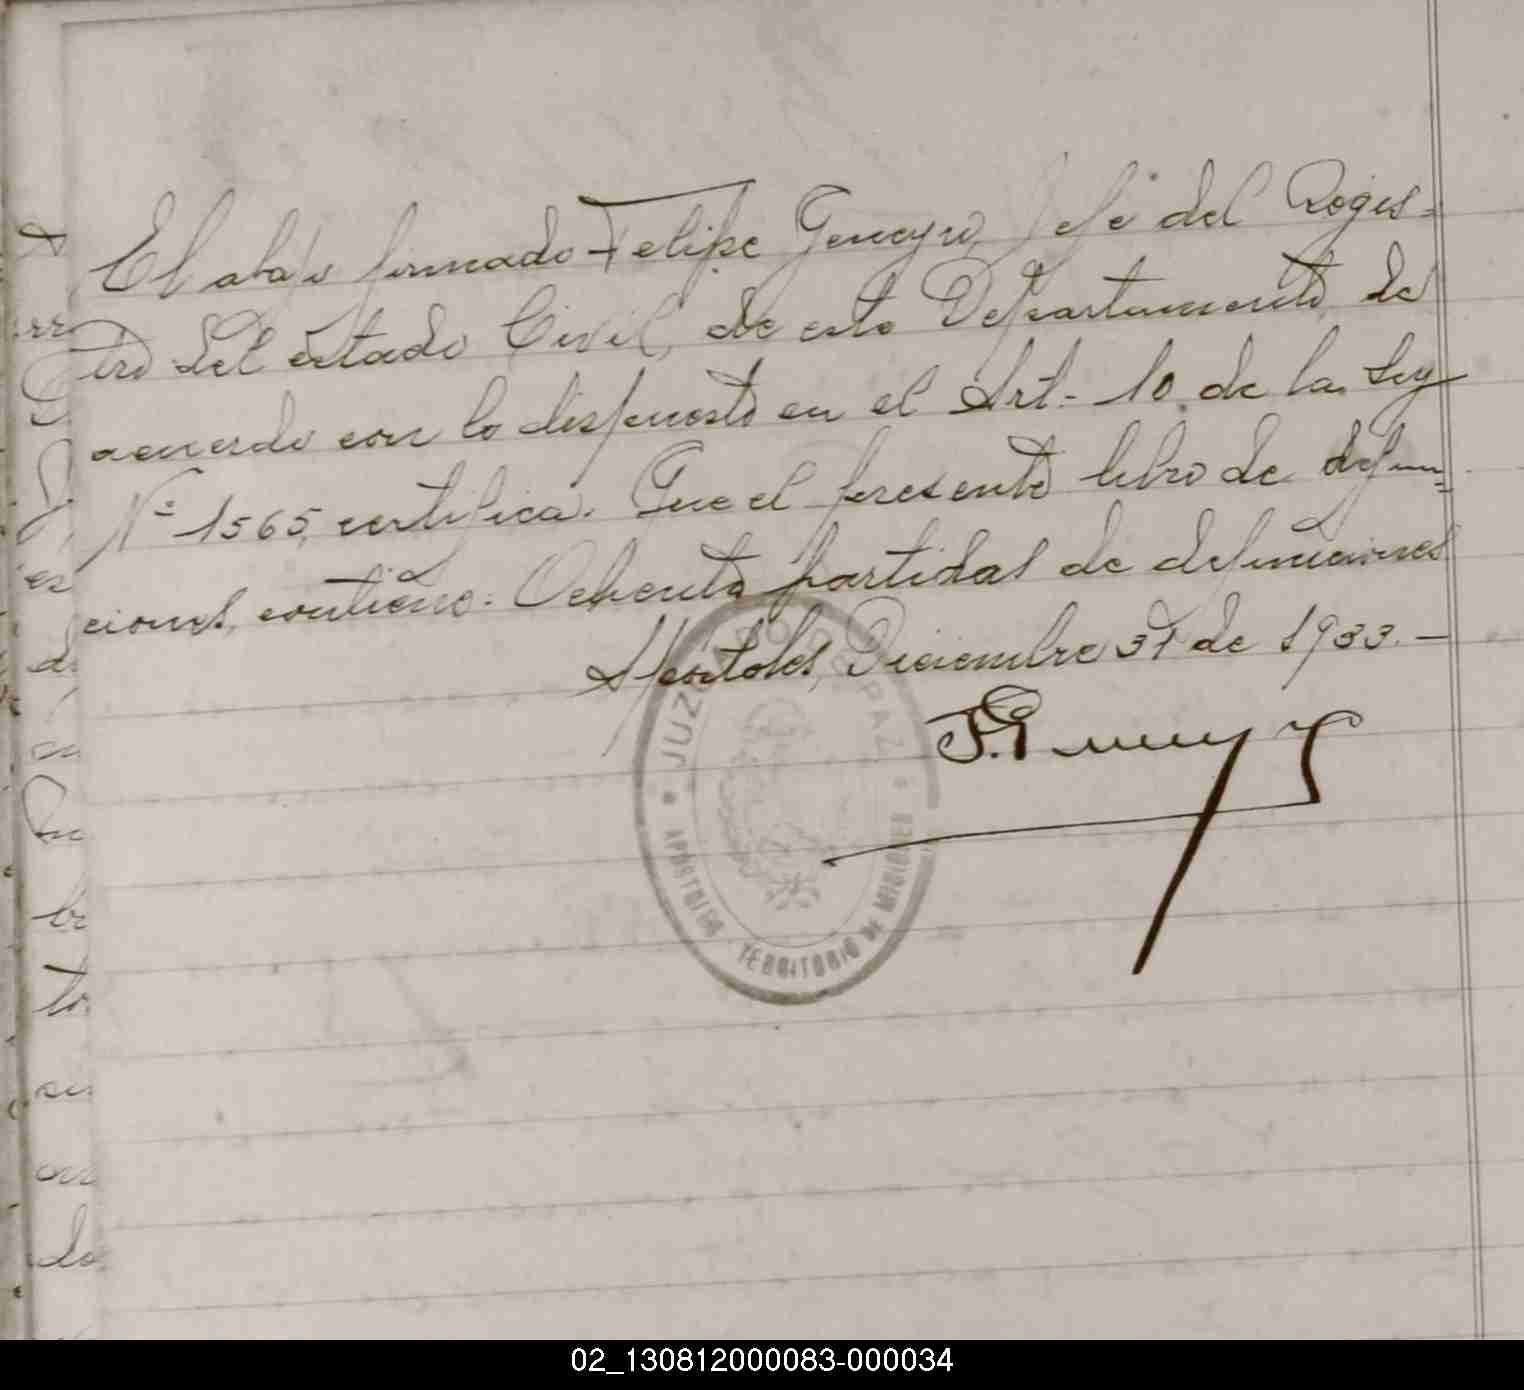 El abajo firmado Felipe Geneyro, Jefe del Regis-
tro del estado Civil, de este Departamento, de
acuerdo con lo dispuesto en el Art.- 10. de la Ley
Nº 1565, certifica. Que el presente libro de defun-
ciones, contiene: Ochenta partidas de defunciones
Apóstoles, Diciembre 31 de 1933.-
JUZGADO DE PAZ
APOSTOLES - TERRITORIO DE MISIONES
02_130812000083-000034